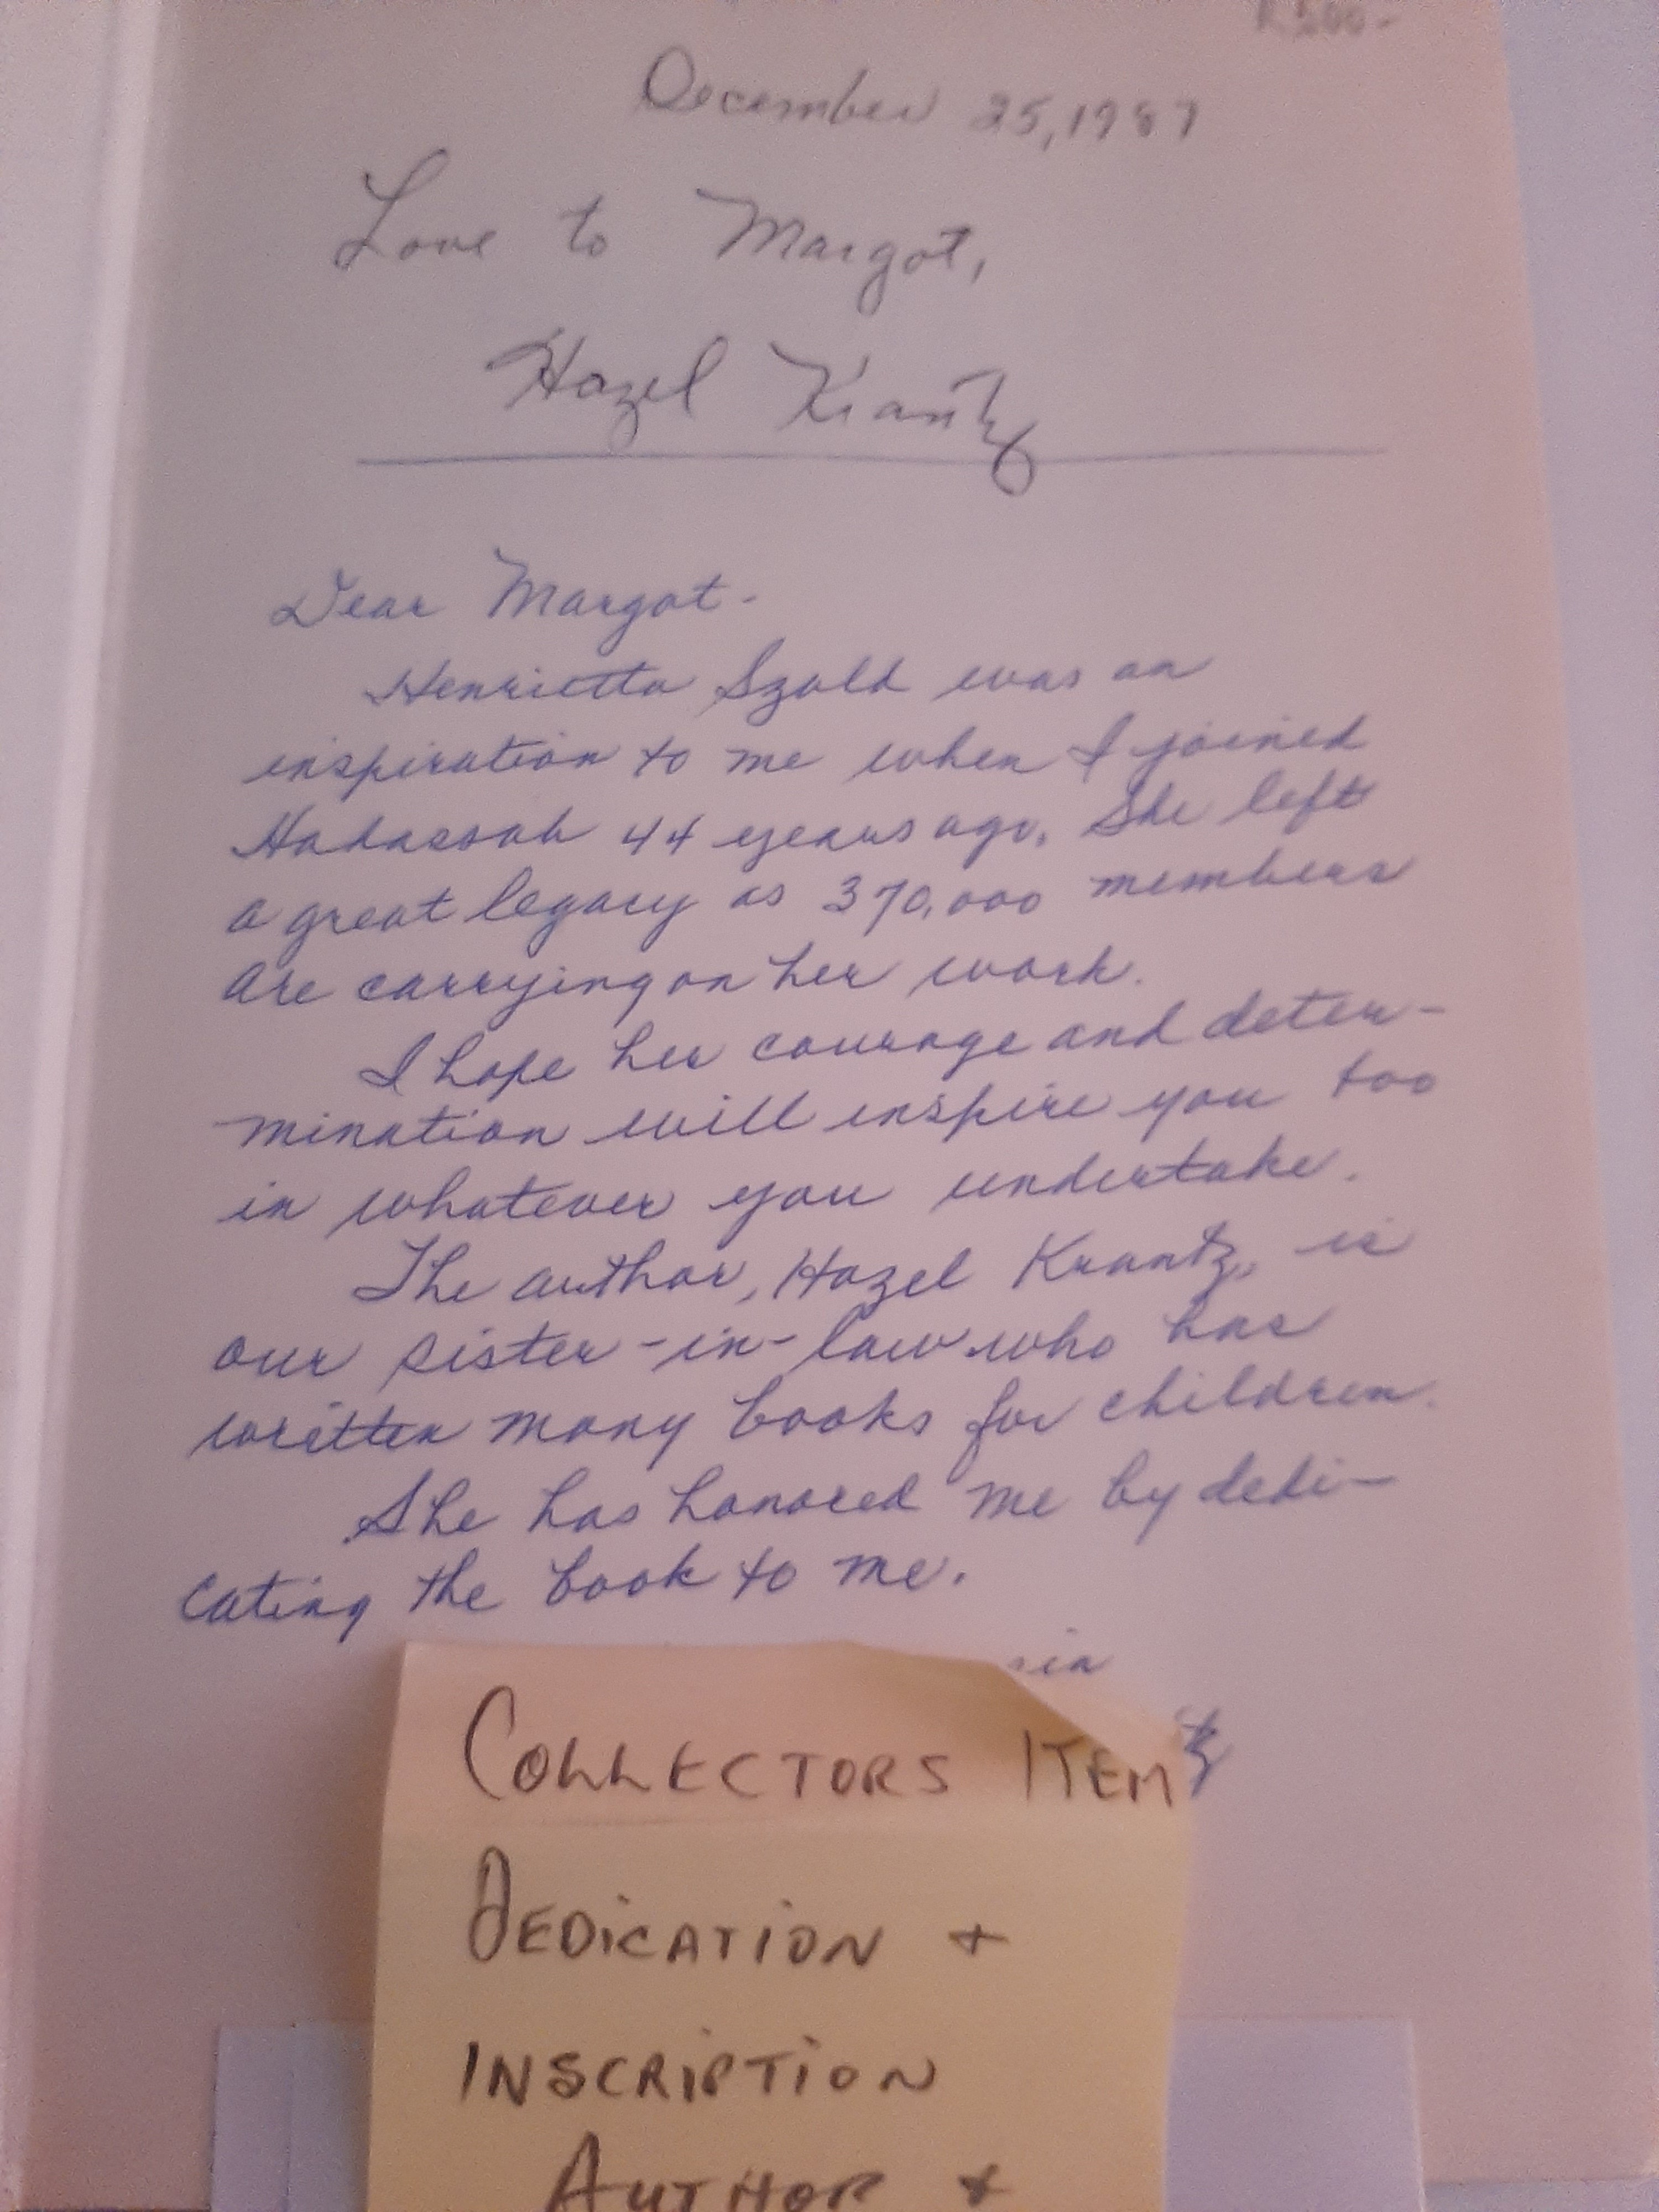 December 25, 1987
Love to Margot,
Hazel Krantz
Dear Margot-
Henrietta Szold was an
inspiration to me when I joined
Hadassah 44 years ago. She left
a great legacy as 370,000 members
are carrying on her work.
I hope her courage and deter-
mination will inspire you too
in whatever you undertake.
The author, Hazel Krantz, is
our sister-in-law who has
written many books for children.
She has honored me by dedi-
cating the book to me.
COLLECTORS ITEM
DEDICATION +
INSCRIPTION
AUTHOR +